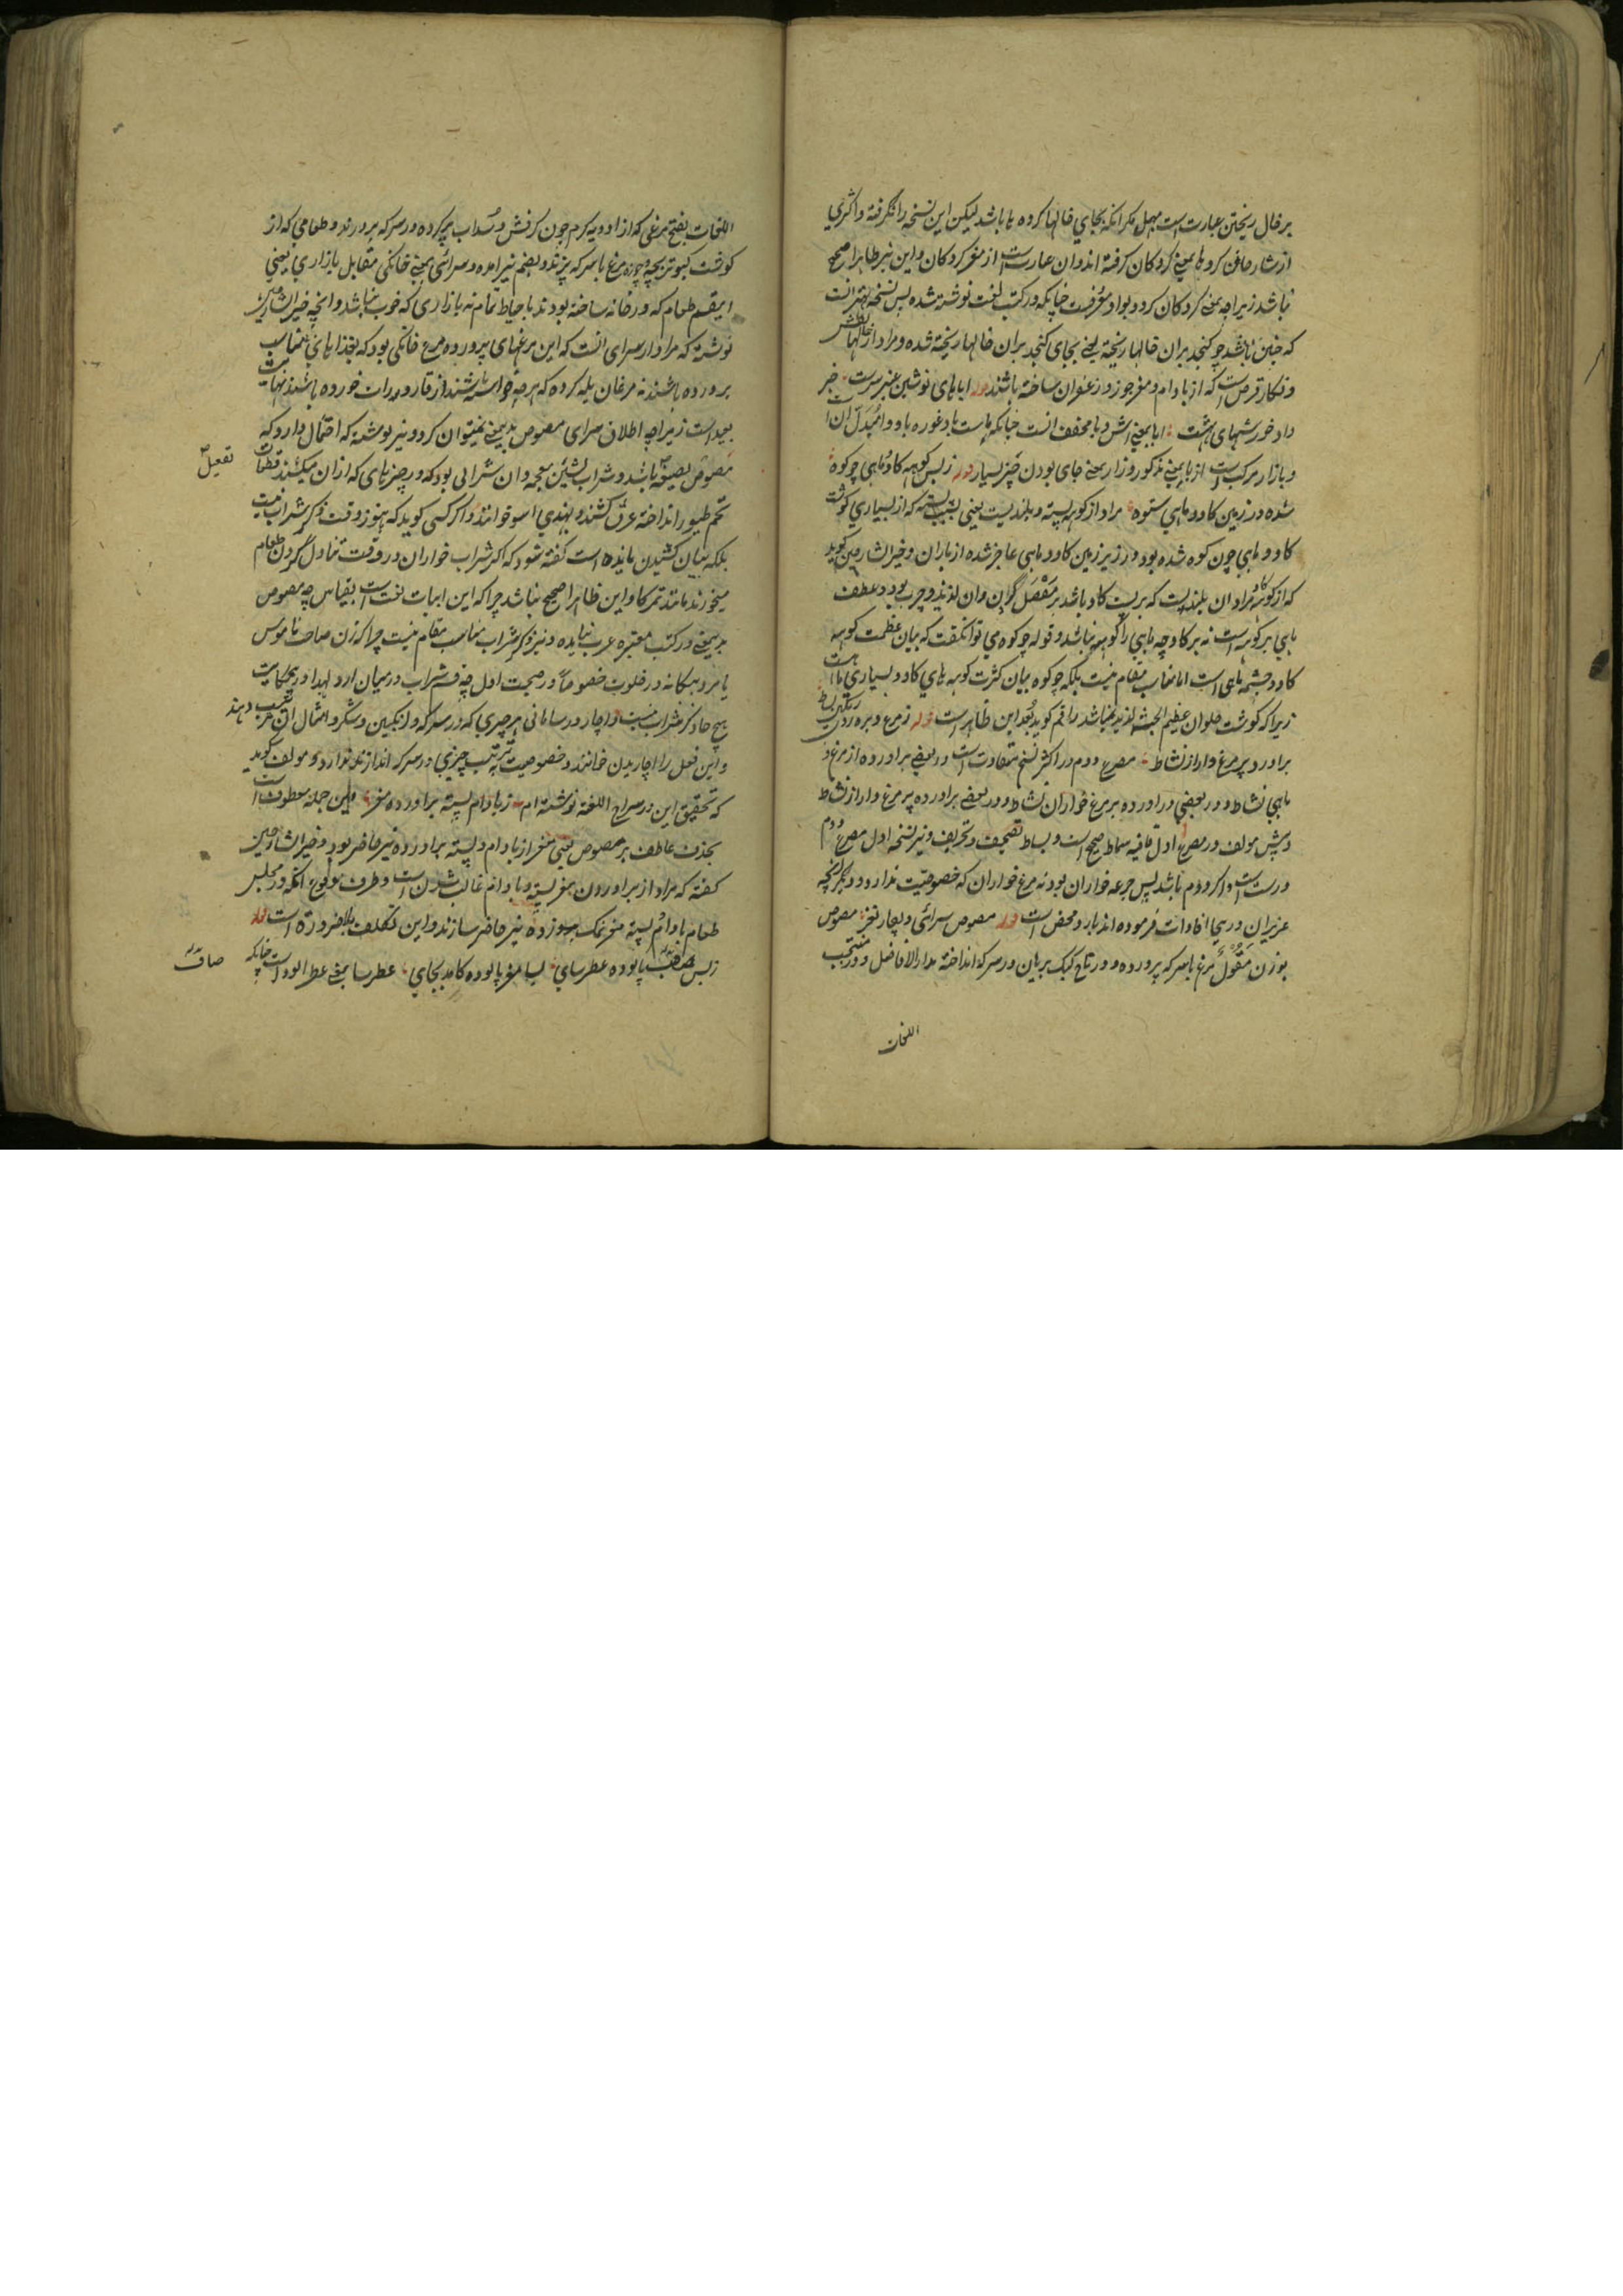 بر فال ریختن عبارت است مهمل مگر انکه بجای خالها کرده ها باشد لیکن این نسخه را نگرفته و اکثری
از شارحان کرد ها بمعنی کردکان کرفته اند و ان عبارت است از مغز کردکان و این نیز ظاهرا صحیح
نباشد زیراچه بمعنی کردکان کردو بواو معروفست چنانکه در کتب لغت نوشته شده پس نسخه بهتر انست
که چنین باشد چو کنجد بران خالها ریخته یعنی بجای کنجد بران خالها ریخته شده و مراد از خالهاش
و نکار قرص است که از بادام و مغز جوز و زعفران ساخته باشند قوله اباهای نوشین عنبر سرشت خبر
داد خورشهای بهشت ابا بمعنی اش و با مخفف انست چنانکه ماست با و غوره با و وا مبدل ان است
و بازار مرکب است از با بمعنی مذکور و زار بمعنی جای بودن چیز بسیار قوله ز بس کوهه کاو و ماهی چو کوه
شده در زمین کاو و ماهی ستوه مراد از کوهه پشته و بلندیست یعنی بسبب پشته که از بسیاری کوشت
کاو و ماهی چون کوه شده بود در زیر زمین کاو و ماهی عاجز شده از باران و خیرالشارحین کوید
که از کوهه کاو مراد ان بلندیست که بر پشت کاو باشد بر مفصل کران و ان لذیذ و چرب بود و عطف
ماهی بر کوهه است نه بر کاو چه ماهی را کوهه نباشد و قوله چو کوه می توانکفت که بیان عظمت کوهه
کاو و جثه ماهی است اما مناسب مقام نیست بلکه چو کوه بیان کثرت کوهه های کاو و بسیاری ماهی است
زیرا که کوشت حلوان عظیم الجثه لذیذ نباشد راقم کوید بعد این ظاهر است قوله ز مرغ و بره روی رنکین بساط
براورد پر مرغ وار از نشاط مصرع دوم در اکثر نسخ متفاوت است در بعضی براورده از مرغ و
ماهی نشاط و در بعضی دراورده بر مرغ خواران نشاط و در بعضی براورده پر مرغ وار از نشاط
و پیش مولف در مصرع اول قافیه سماط صحیح است و بساط تصحیف و تحریف و نیز نسخه اول مصرع دوم
درست است و اکر دوم باشد پس جرعه خواران بود نه مرغ خواران که خصوصیت ندارد و دیکر انچه
عزیزان درینجا افادات فرموده اند بارد محض است قوله مصوص سرائی و بچار نغز مصوص
بوزن مقول مرغ با سرکه پرورده و در تاج کبک بریان در سرکه انداخته مدار الافاضل و در منتخب
اللغات
اللغات بفتح مرغی که از ادویه کرم چون کرفش و سداب پر کرده در سرکه پرورند و طعامی که از
کوشت کبوتر بچه و چوزه مرغ با سرکه پزند و بضم نیز امده و سرائی بمعنی خانکی مقابل بازاری یعنی
اینقسم طعام که در خانه ساخته بودند باحتیاط تمام نه بازاری که خوب نباشد و انچه خیر الشارحین
نوشته که مراد از سرای انست که این مرغهای پرورده مرغ خانکی بود که بغذاهای مناسب
پرورده باشند نه مرغان یله کرده که هرچه خواسته باشند از قاذورات خورده باشند نهایت
بعید است زیراچه اطلاق سرای مصوص بدین معنی نمیتوان کرد و نیز نوشته که احتمال دارد که
مصوص بصیغه باشد و شراب بشین معجمه و ان شرابی بود که در چیزهای که ازان میکشند قطعات
تفعل
لحم طیور انداخته عرق کشند و بهندی اسو خوانند و اکر کسی کوید که هنوز وقت ذکر شراب نیست
بلکه بیان کشیدن مائده است کفته شود که اکثر شراب خواران در وقت تناول کردن طعام
میخورند مانند تمرکا و این ظاهرا صحیح نباشد چراکه این ابیات لغت است بقیاس چه مصوص
بدین معنی در کتب معتبره عرب نیامده و نیز ذکر شراب مناسب مقام نیست چراکه زن صاحب ناموس
با مرد بیکانه در خلوت خصوصا در صحبت اول چه قسم شراب در میان ارد لهذا درین حکایت
هیچ جا ذکر شراب نیست و اچار و رسامانی هر چیزی که در سرکه و انکبین و شکر و امثال ان ترتیب دهند
و این فعل را اچاریدن خوانند و خصوصیت ترتیب چیزی در سرکه انداختن ندارد و مولف کوید
که تحقیق این در سراج اللغة نوشته ام قوله ز بادام پسته براورده مغز این جمله معطوف است
بحذف عاطف بر مصوص یعنی مغز از بادام و پسته براورده نیز حاضر بود و خیر الشارحین
کفته که مراد از براوردن مغز پسته و بادام غالب شدن است و طرف وقوع انکه در مجلس
طعام بادام پسته مغز نمک سوز زده نیز حاضر سازند و این تکلف بلا ضرورة است قوله
ز بس صحن پالوده عطرسای بسا مغز پالوده کامد بجای عطرسا بمعنی عطر الود است چنانکه
صاف